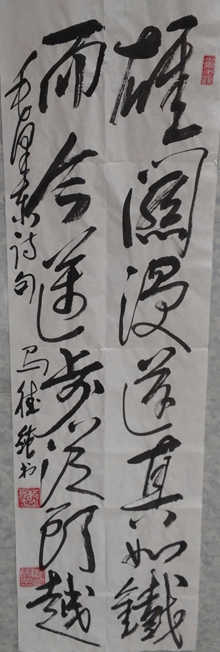 雄關漫道真如鐵
而今邁步從頭越
毛澤東詩句 馬德